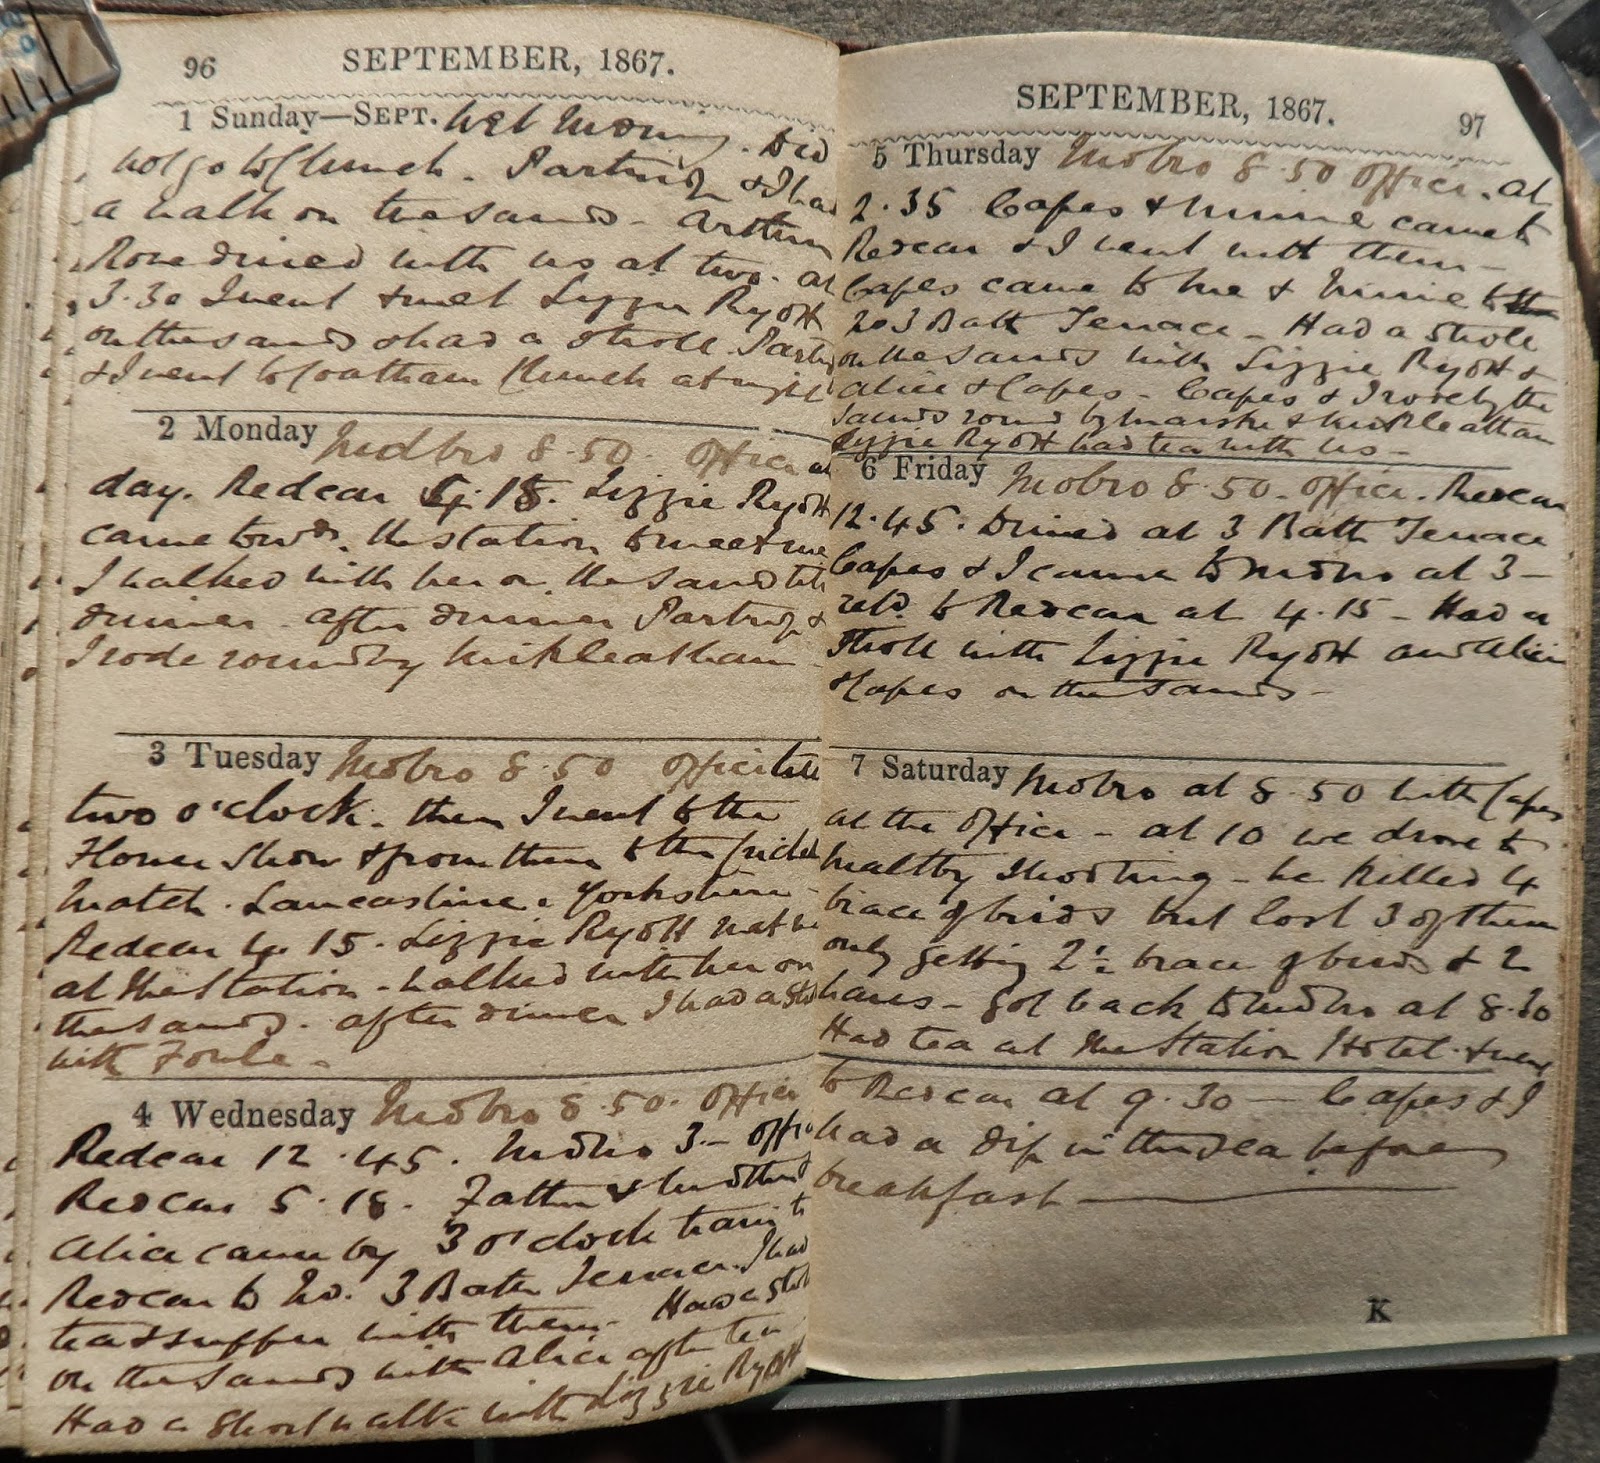 96 SEPTEMBER, 1867.
1 Sunday—SEPT. Wet Morning. Did
not go to Church. Partridge & I had
a walk on the sands - Arthur
Rowe dined with us at two. at
3.30 I went & met Lizzie Ryott
on the sands & had a stroll. Partridge
& I went to Coatham Church at night
2 Monday Mdbro 8.50. Office all
day. Redcar 4.15. Lizzie Ryott
came towds. the station to meet me
I walked with her on the sands till
dinner. after dinner Partridge &
I rode round by Kirkleatham
3 Tuesday Mdbro 8.50 Office till
two o'clock. then I went to the
Flower Show & from then to the Cricket
Match. Lancashire v Yorkshire
Redcar 4.15. Lizzie Ryott met me
at the station - walked with her on
the sands. after dinner I had a stroll
with Foule -
4 Wednesday Mdbro 8.50. Office
Redcar 12.45. Mdbro 3.- Office
Redcar 5.18. Father & Mother &
Alice came by 3 o'clock train to
Redcar to No. 3 Bath Terrace. I had
tea & supper with them. Had a stroll
on the sands with Alice after tea
Had a short walk with Lizzie Ryott
SEPTEMBER, 1867. 97
5 Thursday Mdbro 8.50 Office. at
2.35 Capes & Minnie came to
Redcar & I went with them -
Capes came to me & Minnie to
3 Bath Terrace - Had a stroll
on the sands with Lizzie Ryott &
Alice & Capes - Capes & I rode by the
sands round by Marske & Kirkleatham
Lizzie Ryott had tea with us -
6 Friday Mdbro 8.50. Office. Redcar
12.45. Dined at 3 Bath Terrace
Capes & I came to Mdbro at 3 -
retd. to Redcar at 4.15 - Had a
stroll with Lizzie Ryott and Alice
& Capes on the sands -
7 Saturday Mdbro at 8.50 with Capes
at the Office - at 10 we drove to
Maltby Shooting - he killed 4
brace of birds but lost 3 of them
only getting 2½ brace of birds & 2
hares - got back to Mdbro at 8.30
Had tea at the Station Hotel & went
to Redcar at 9.30 — Capes & I
had a dip in the sea before
breakfast —
K